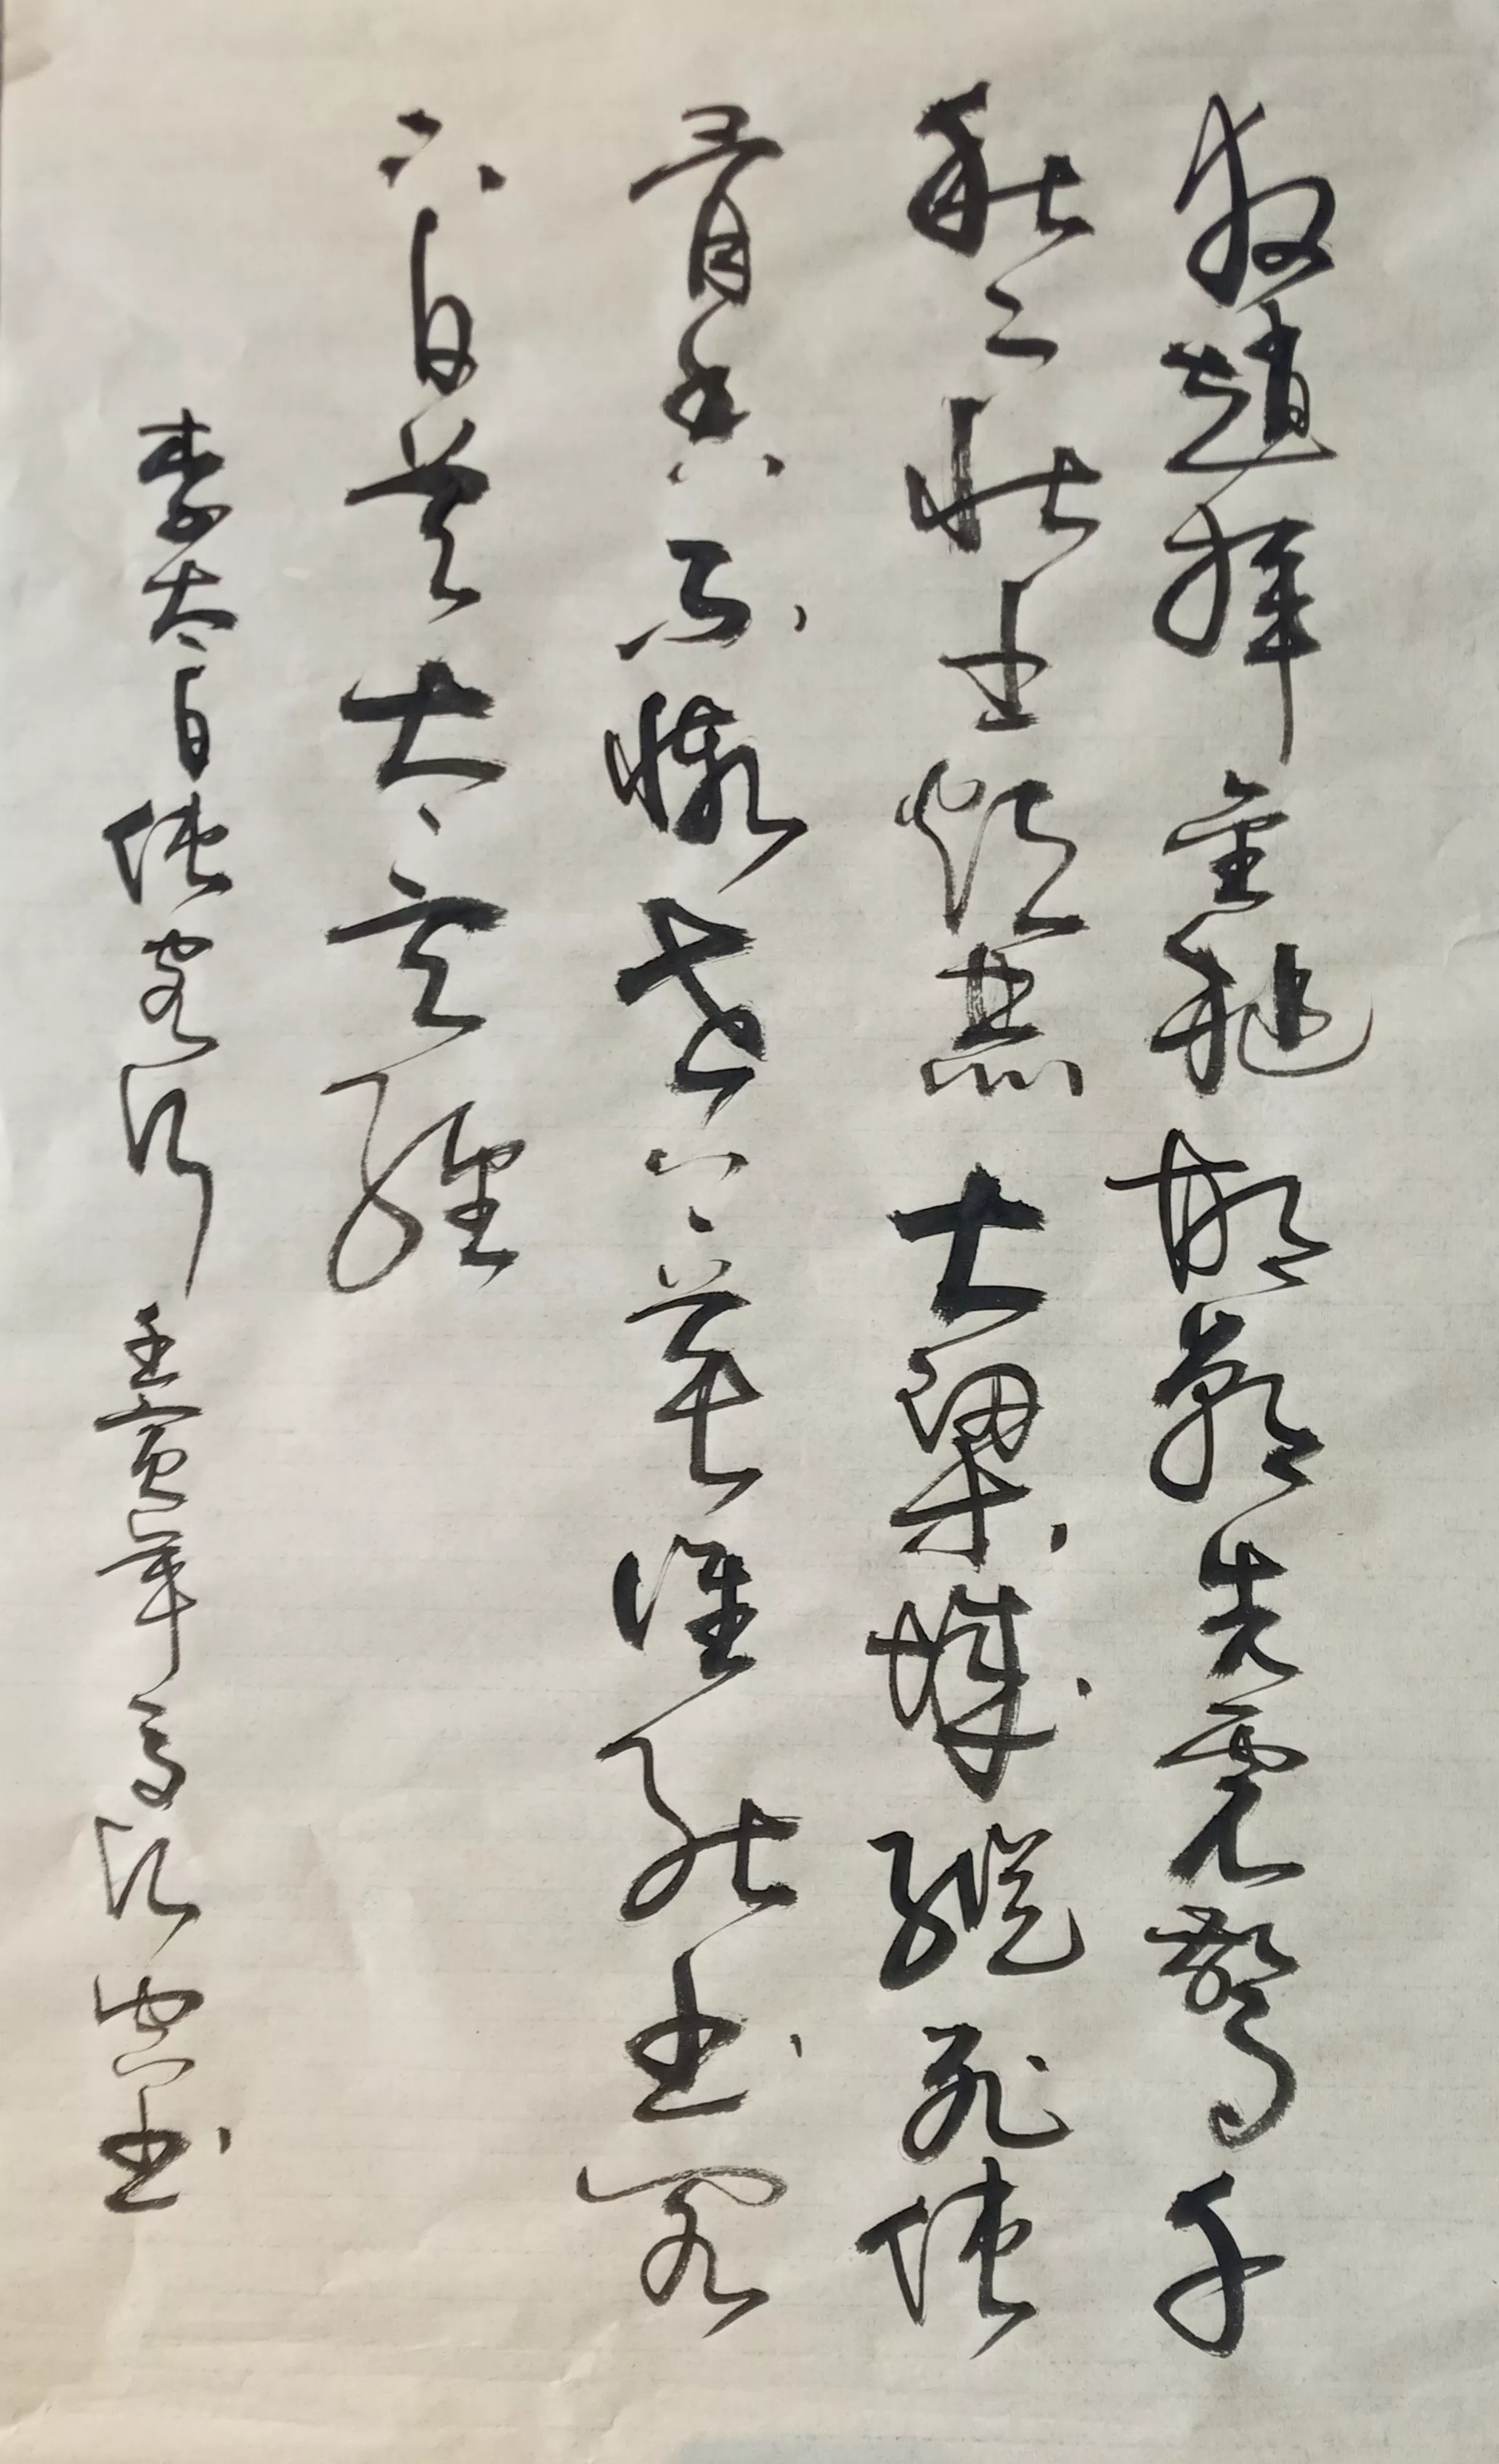 救趙揮金槌邯鄲先震驚千
秋二壯士烜赫大梁城縱死俠
骨香不慚世上英誰能書閣
下白首太玄經
李太白俠客行 壬寅年書